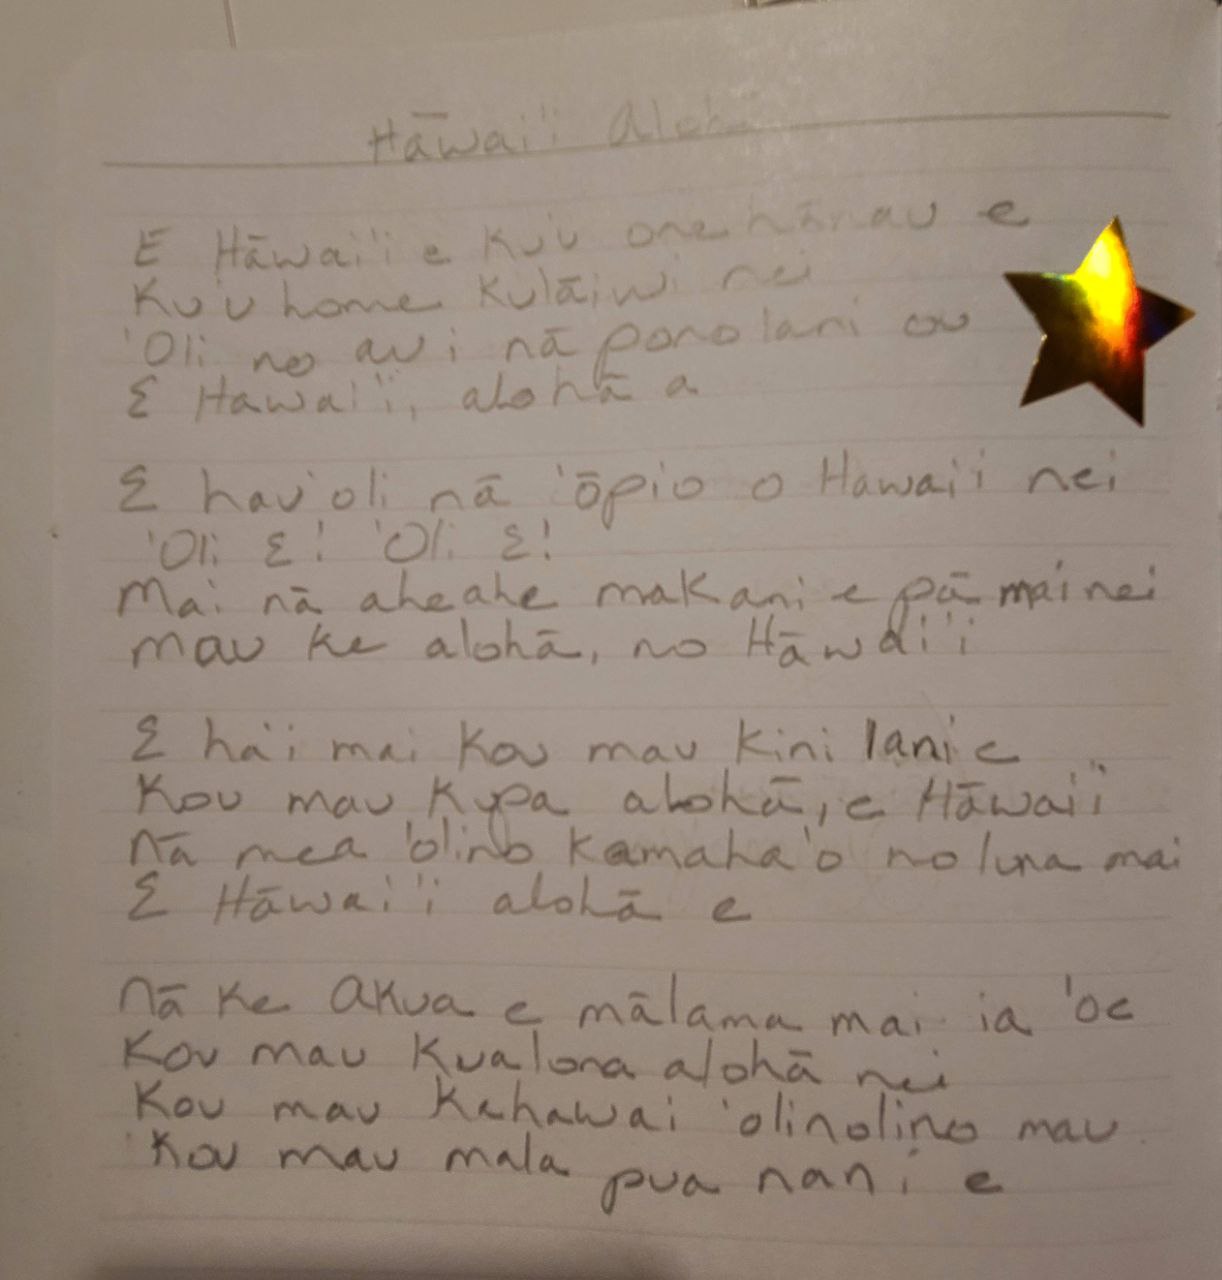 Hāwai'i Aloha
E Hāwai'i e Ku'u one hānau e
Ku'u home Kulāiwi nei
'Oli no au i nā pono lani ou
E Hawai'i, alohā a
E hau'oli nā 'ōpio o Hawai'i nei
'Oli E! 'Oli E!
Mai nā aheahe makani e pā mai nei
mau ke alohā, no Hāwai'i
E ha'i mai Kou mau Kini lani e
Kou mau Kupa alohā, e Hāwai'i
nā mea 'olino Kamaha'o no luna mai
E Hāwai'i alohā e
nā Ke Akua e mālama mai ia 'oe
Kou mau Kualona alohā nei
Kou mau Kahawai 'olinolino mau
Kou mau mala pua nani e